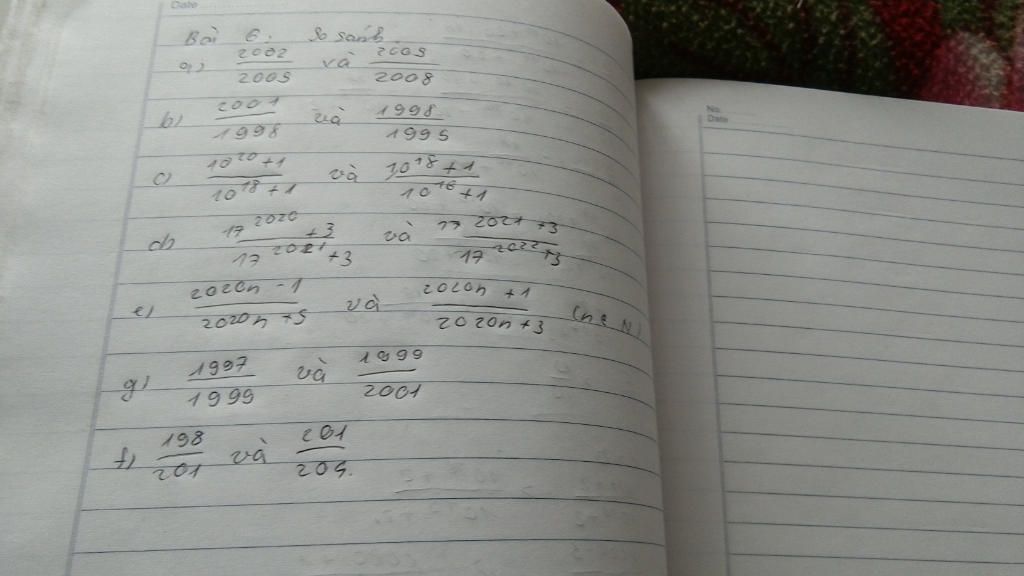 Date
Bài 6: So sánh
a) 2002/2005 và 2005/2008
b) 2001/1998 và 1998/1995
c) 10^20+1/10^18+1 và 10^18+1/10^16+1
d) 17^2020+3/17^2021+3 và 17^2021+3/17^2022+3
e) 2020n-1/2020n+5 và 2020n+1/2020n+3 (n∈N)
g) 1997/1999 và 1999/2001
f) 198/201 và 201/204.
No.
Date